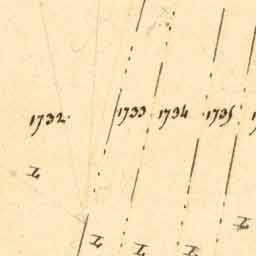 1732. 1733 1734 1735